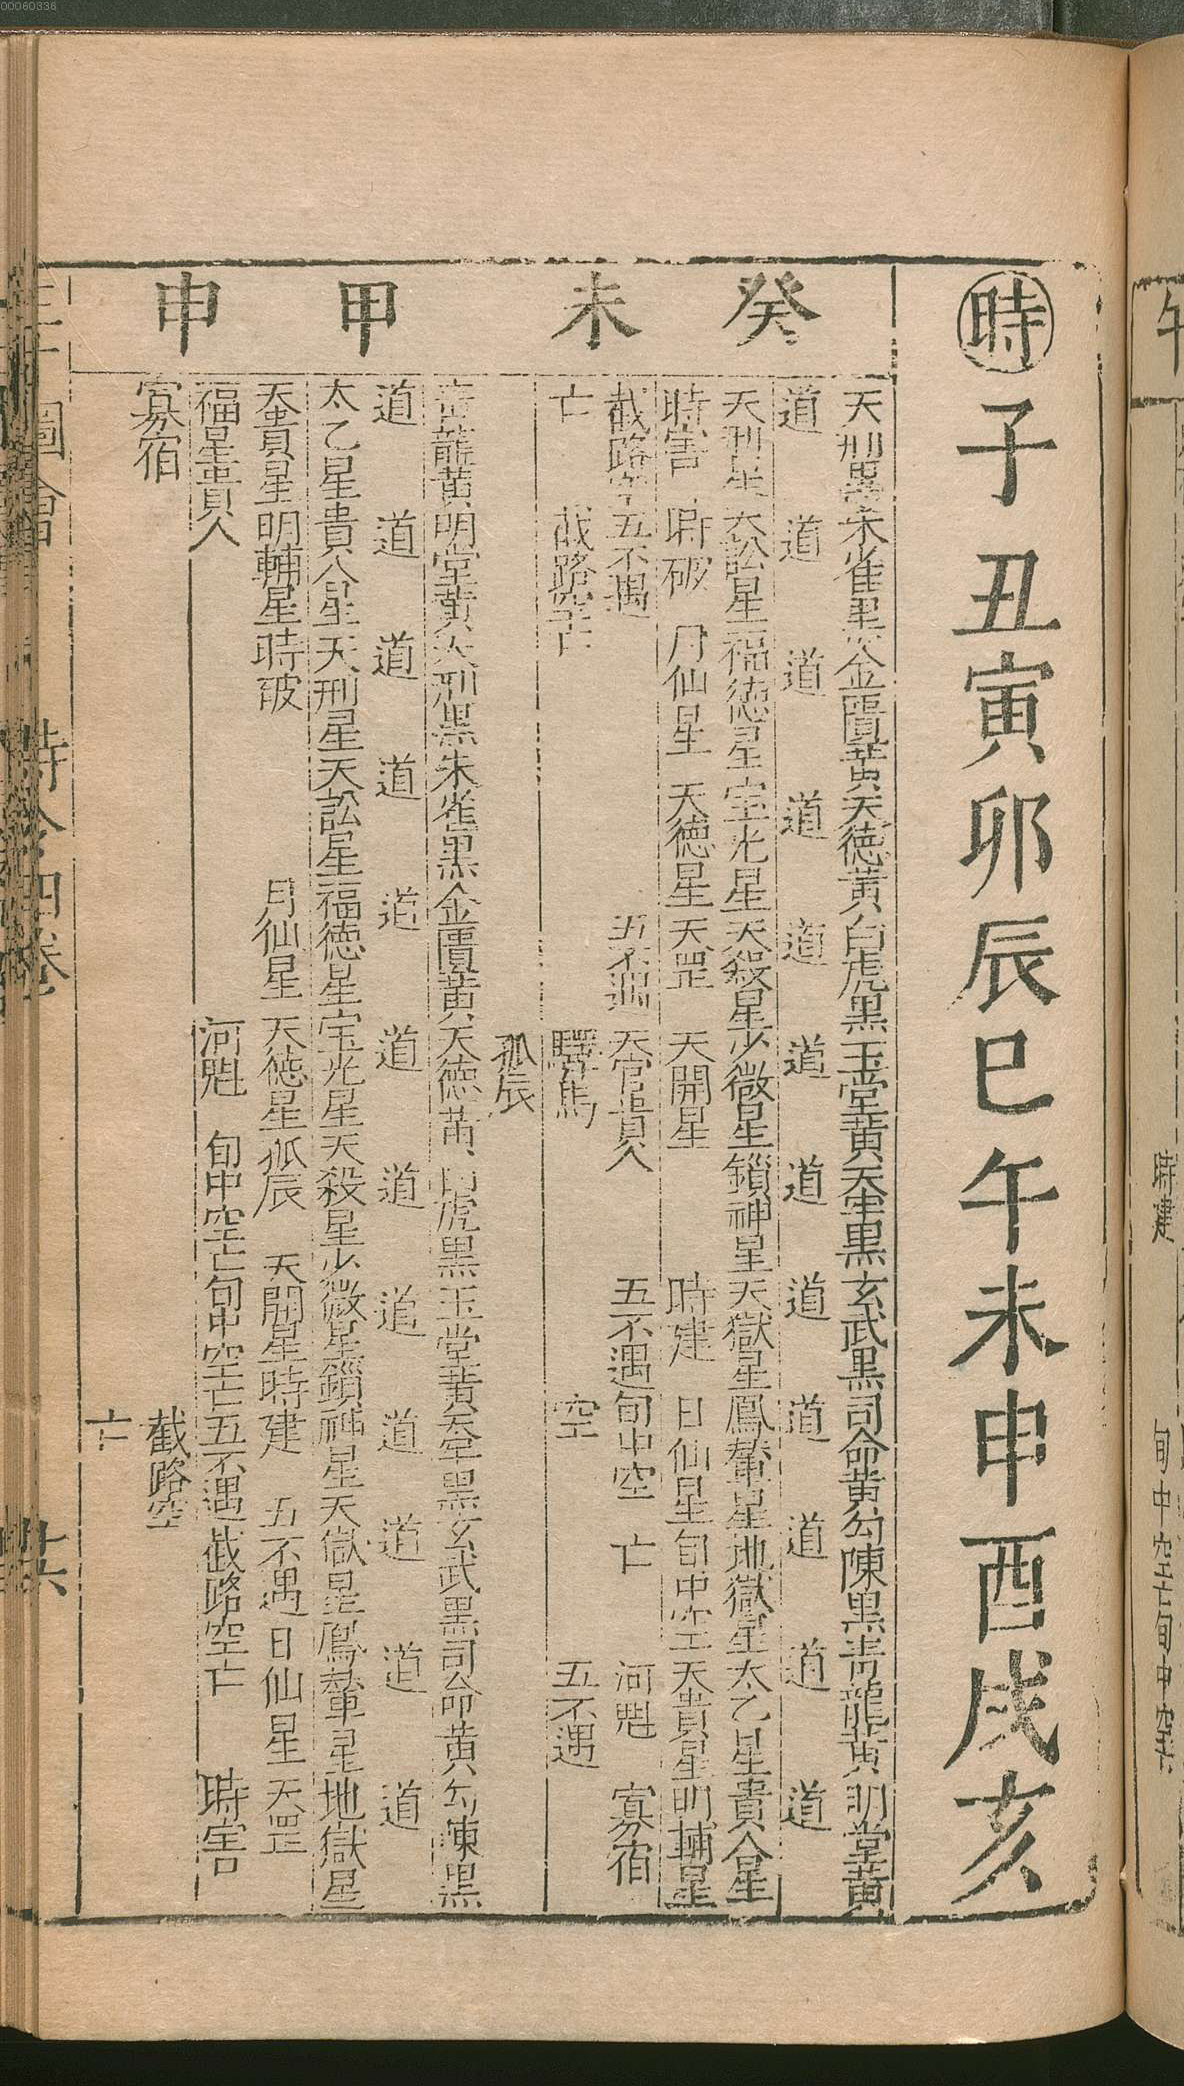 00060336
時子丑寅卯辰巳午未申酉戌亥
癸未
天刑黑朱雀黑金匱黃天德黃白虎黑玉堂黃天牢黑玄武黑司命黃勾陳黑青龍黃明堂黃
道道道道道道道道道道道道
天刑星天訟星福德星宝光星天殺星少微星鎖神星天獄星鳳輦星地獄星太乙星貴人星
時害 時破 月仙星 天德星天罡 天開星 時建 日仙星旬中空天貴星明輔星
截路空五不遇 五不遇 天官貴人 五不遇旬中空 亡 河魁 寡宿
亡 截路空亡 驛馬 空 五不遇
孤辰
甲申
青龍黃明堂黃天刑黑朱雀黑金匱黃天德黃白虎黑玉堂黃天牢黑玄武黑司命黃勾陳黑
道道道道道道道道道道道道
太乙星貴人星天刑星天訟星福德星宝光星天殺星少微星鎖神星天獄星鳳輦星地獄星
天貴星明輔星時破 月仙星 天德星孤辰 天開星時建 五不遇日仙星天罡
福星貴人 河魁 旬中空亡旬中空亡五不遇截路空亡 時害
寡宿 截路空
亡
三才圖會 時令四卷 共
午
時建
旬中空亡旬中空